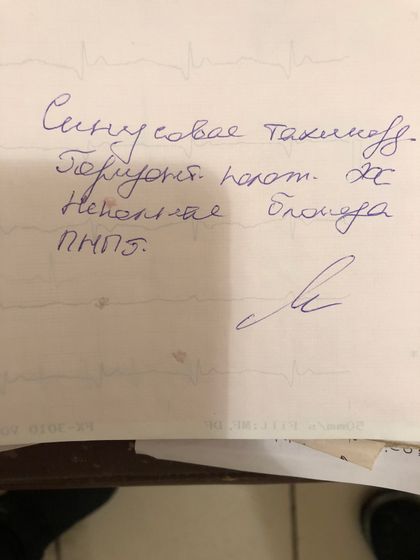 Синусовая тахикард.
Горизонт. полож. ЭОС
Неполная блокада
ПНПГ.
50mm/s Fil:MF, DF
FX-3010 V0